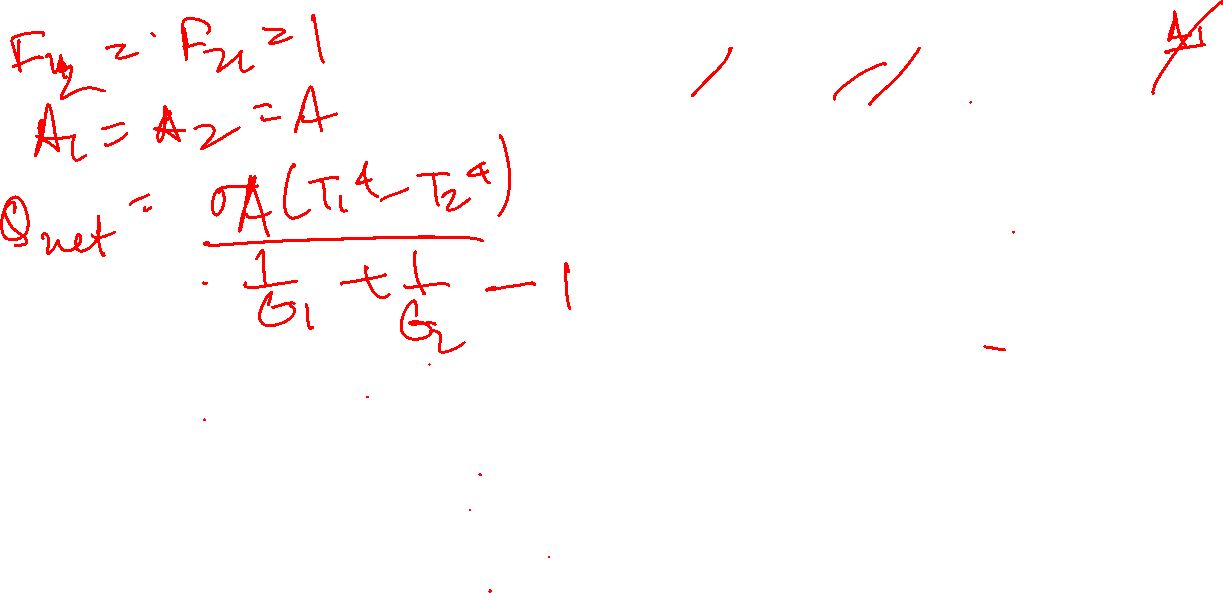 F₁₂ = F₂₁ = 1
A₁ = A₂ = A
Qnet = σA(T₁⁴ - T₂⁴)
1/ϵ₁ + 1/ϵ₂ - 1